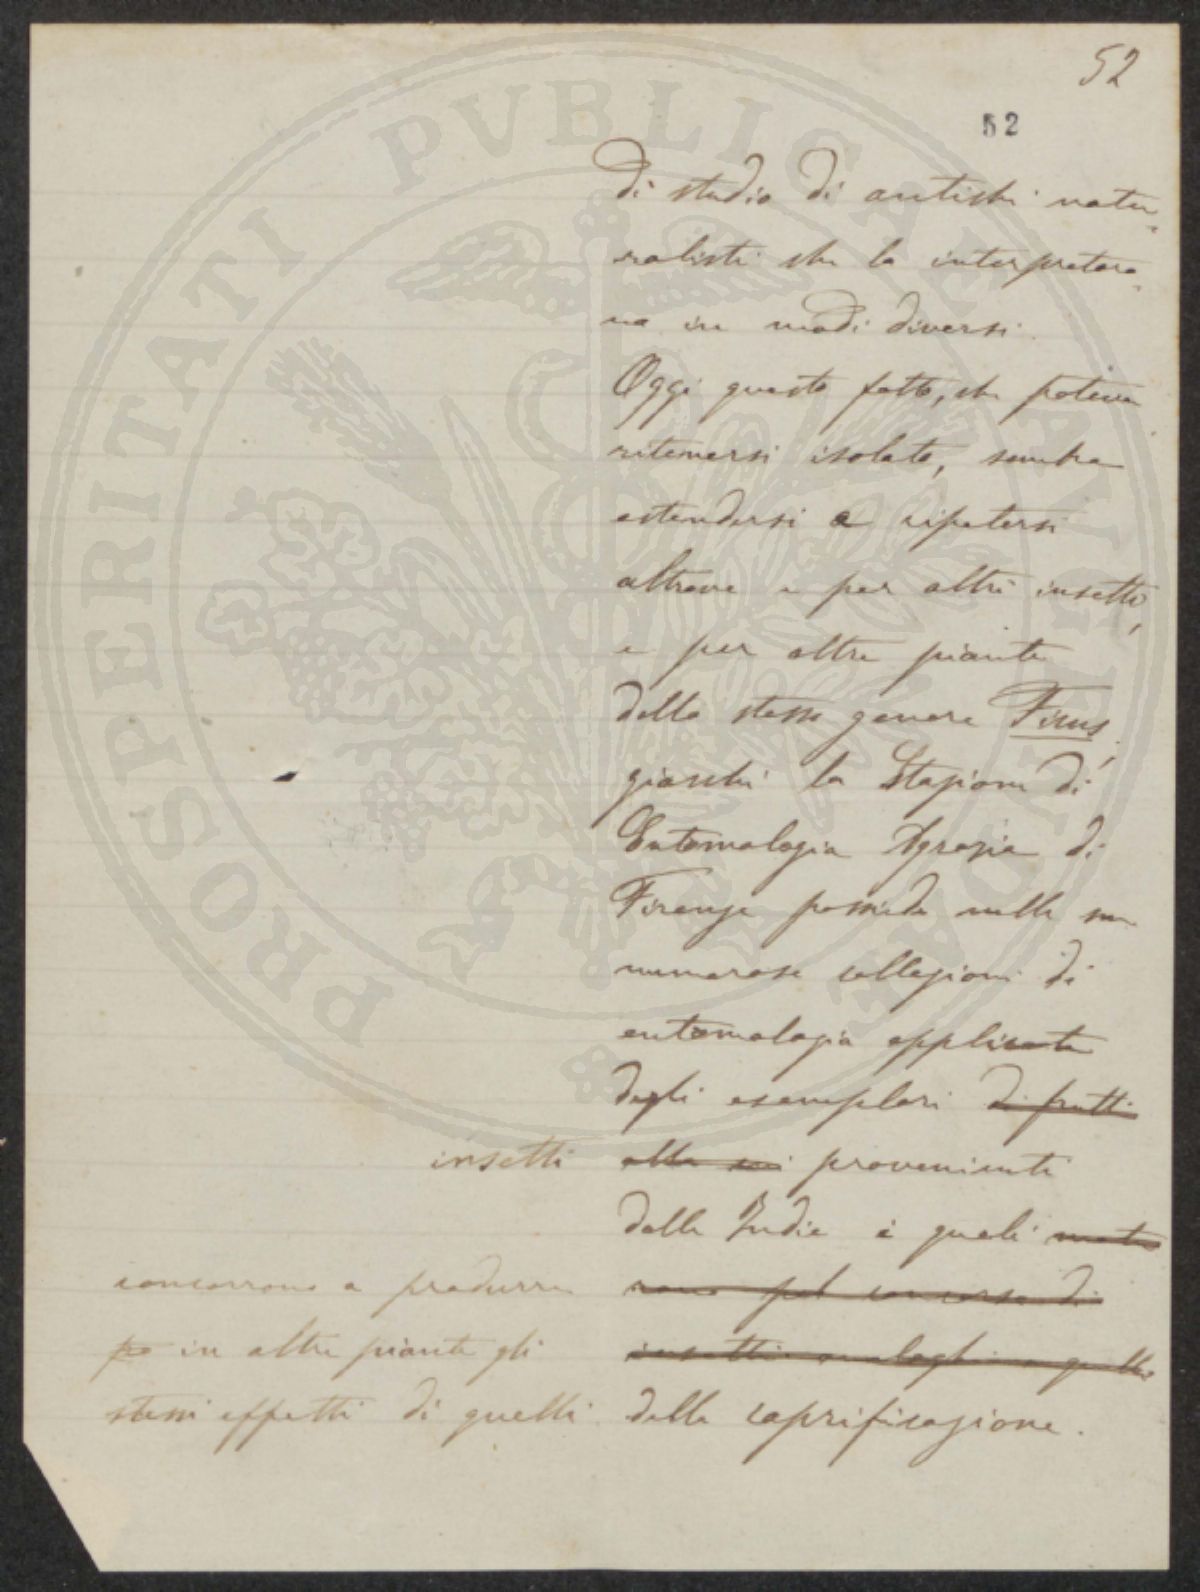 52
52
di studio di antichi natu-
ralisti che la interpretaro-
no in modi diversi.
Oggi questo fatto, che poteva
ritenersi isolato, sembra
estendersi e ripetersi
altrove e per altri insetti,
e per altre piante
dello stesso genere Ficus,
giacchè la Stazione di
Entomologia Agraria di
Firenze possiede nelle sue
numerose collezioni di
entomologia applicata
degli esemplari di frutti
insetti alla provenienti
dalle Indie i quali matu
rano pel concorso di
insetti analoghi a quello
concorrono a produrre
po in altre piante gli
stessi effetti di quelli della caprificazione.
PROSPERITATI PVBLICAE